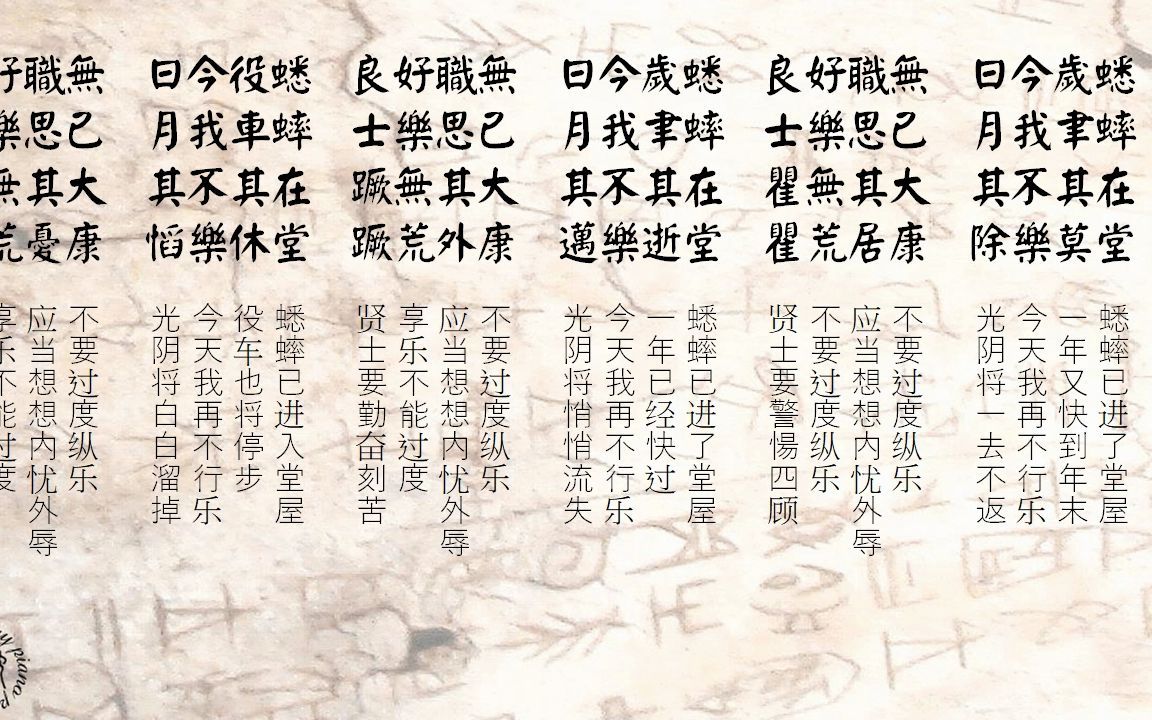 蟋蟀在堂
歲聿其莫
今我不樂
日月其除
無已大康
職思其居
好樂無荒
良士瞿瞿
蟋蟀在堂
歲聿其逝
今我不樂
日月其邁
無已大康
職思其外
好樂無荒
良士蹶蹶
蟋蟀在堂
役車其休
今我不樂
日月其慆
無已大康
職思其憂
好樂無荒
蟋蟀已进了堂屋
一年又快到年末
今天我再不行乐
光阴将一去不返
不要过度纵乐
应当想想内忧外辱
不要过度纵乐
贤士要警惕四顾
蟋蟀已进了堂屋
一年已经快过
今天我再不行乐
光阴将悄悄流失
不要过度纵乐
应当想想内忧外辱
享乐不能过度
贤士要勤奋刻苦
蟋蟀已进入堂屋
役车也将停步
今天我再不行乐
光阴将白白溜掉
不要过度纵乐
应当想想内忧外辱
享乐不能过度
piano